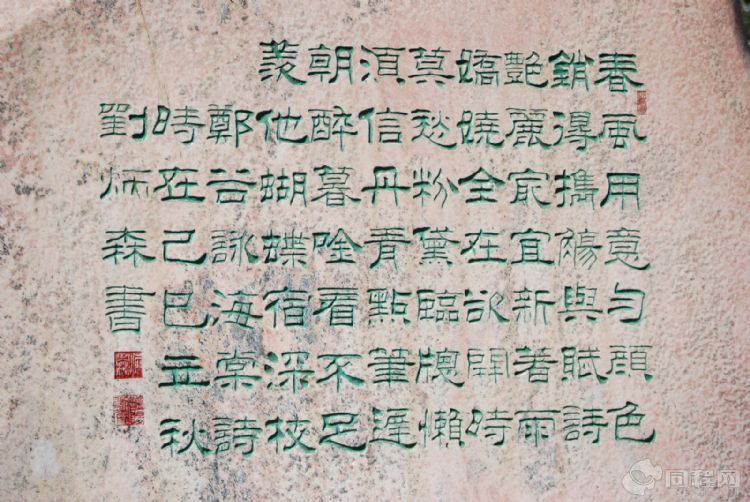 春風用意匀顔色
銷得攜觴與賦詩
艷麗冣宜新著雨
嬌嬈全在欲開時
莫愁粉黛臨牕懶
湏信丹青點筆遲
朝醉暮唫看不足
羨他蝴蝶宿深枝
鄭谷詠海棠詩
時在己巳立秋
劉炳森書
同程网